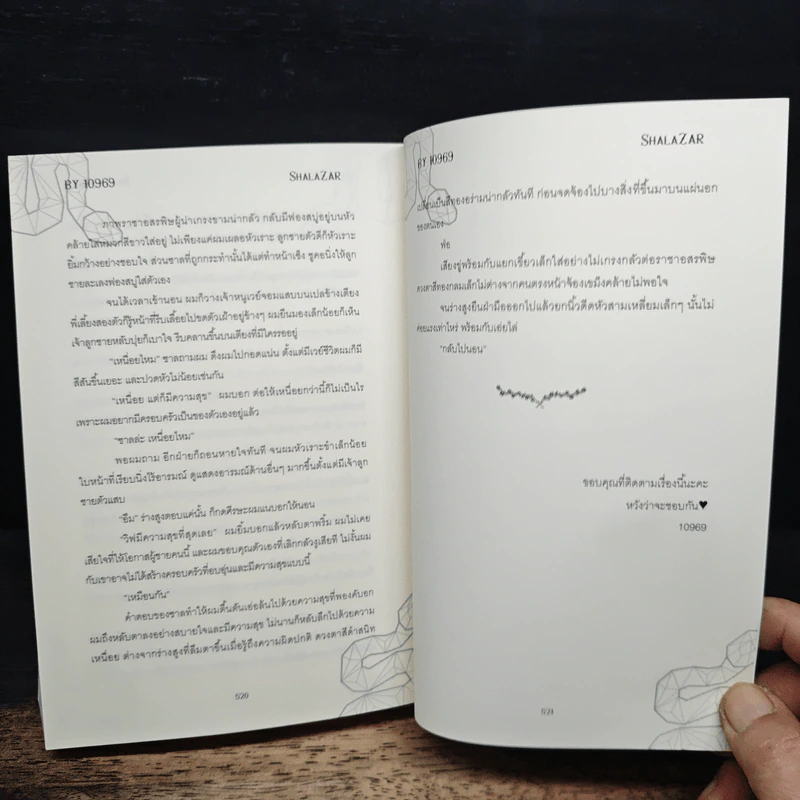 BY 10969
SHALAZAR
ภาพราชาอสรพิษผู้น่าเกรงขามน่ากลัว กลับมีฟองสบู่อยู่บนหัว
คล้ายใส่หมวกสีขาวใส่อยู่ ไม่เพียงแค่ผมเผลอหัวเราะ ลูกชายตัวดีก็หัวเราะ
ยิ้มกว้างอย่างชอบใจ ส่วนชาลที่ถูกกระทำนั้นได้แต่ทำหน้าเซ็ง ชูคอนิ่งให้ลูก
ชายละเลงฟองสบู่ใส่ตัวเอง
จนได้เวลาเข้านอน ผมก็วางเจ้าหนูเวย์จอมแสบบนเปลข้างเตียง
พี่เลี้ยงสองตัวก็รู้หน้าที่รีบเลื้อยไปขดตัวเฝ้าอยู่ข้างๆ ผมยืนมองเด็กน้อยก็เห็น
เจ้าลูกชายหลับปุ๋ยก็เบาใจ รีบคลานขึ้นบนเตียงที่มีใครรออยู่
"เหนื่อยไหม" ชาลถามผม ดึงผมไปกอดแน่น ตั้งแต่มีเวย์ชีวิตผมก็มี
สีสันขึ้นเยอะ และปวดหัวไม่น้อยเช่นกัน
"เหนื่อย แต่ก็มีความสุข" ผมบอก ต่อให้เหนื่อยกว่านี้ก็ไม่เป็นไร
เพราะผมอยากมีครอบครัวเป็นของตัวเองอยู่แล้ว
"ชาลล่ะ เหนื่อยไหม"
พอผมถาม อีกฝ่ายก็ถอนหายใจทันที จนผมหัวเราะขำเล็กน้อย
ใบหน้าที่เรียบนิ่งไร้อารมณ์ ดูแสดงอารมณ์ด้านอื่นๆ มากขึ้นตั้งแต่มีเจ้าลูก
ชายตัวแสบ
"อืม" ร่างสูงตอบแค่นั้น ก็กดศีรษะผมแนบอกให้นอน
"วิฬมีความสุขที่สุดเลย" ผมยิ้มบอกแล้วหลับตาพริ้ม ผมไม่เคย
เสียใจที่ให้โอกาสผู้ชายคนนี้ และผมขอบคุณตัวเองที่เลิกกลัวงูเสียที ไม่งั้นผม
กับเขาอาจไม่ได้สร้างครอบครัวที่อบอุ่นและมีความสุขแบบนี้
"เหมือนกัน"
คำตอบของชาลทำให้ผมตื้นตันเอ่อล้นไปด้วยความสุขที่พองคับอก
ผมถึงหลับตาลงอย่างสบายใจและมีความสุข ไม่นานก็หลับลึกไปด้วยความ
เหนื่อย ต่างจากร่างสูงที่ลืมตาขึ้นเมื่อรู้ถึงความผิดปกติ ดวงตาสีดำสนิท
520
BY 10969
SHALAZAR
เปลี่ยนเป็นสีทองอร่ามน่ากลัวทันที ก่อนจดจ้องไปบางสิ่งที่ขึ้นมาบนแผ่นอก
ของตนเอง
ฟ่อ
เสียงขู่พร้อมกับแยกเขี้ยวเล็กใส่อย่างไม่เกรงกลัวต่อราชาอสรพิษ
ดวงตาสีทองกลมเล็กไม่ต่างจากคนตรงหน้าจ้องเขม็งคล้ายไม่พอใจ
จนร่างสูงยืนฝ่ามือออกไปแล้วยกนิ้วดีดหัวสามเหลี่ยมเล็กๆ นั้นไม่
ค่อยแรงเท่าไหร่ พร้อมกับเอ่ยไล่
"กลับไปนอน"
ขอบคุณที่ติดตามเรื่องนี้นะคะ
หวังว่าจะชอบกัน♥
10969
521